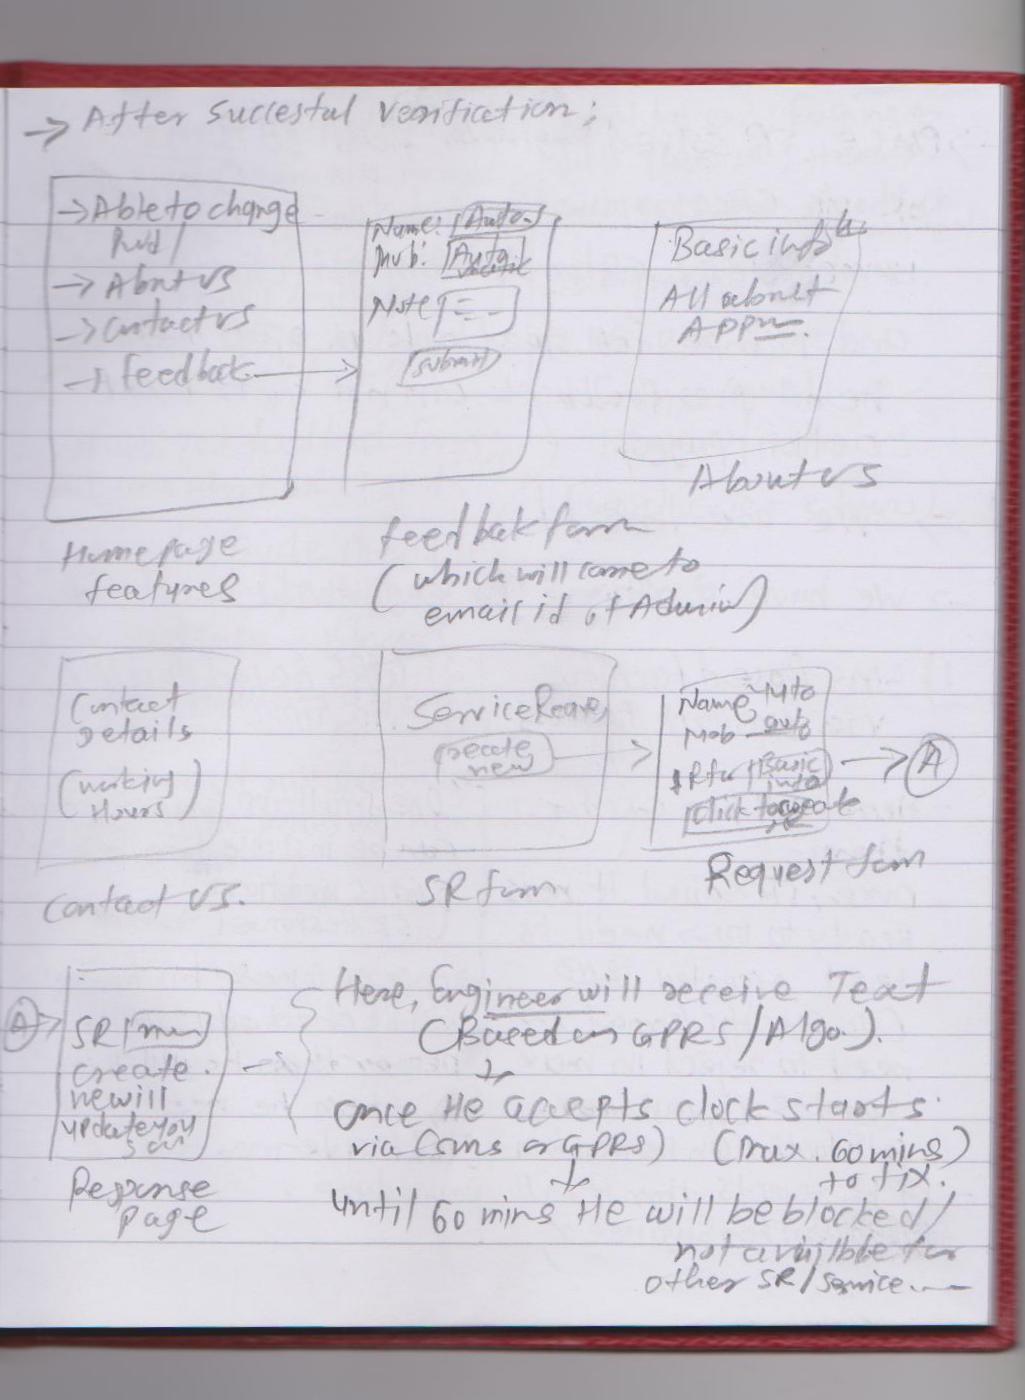 → After Succestal Verification;
→ Able to change
Pwd/
→ About US
→ Contact US
→ feedback
Home page
features
Name: Auto
Mob: Auto
Note
Submit
feedback form
(which will come to
email id of Admin)
Basic info
All about
APPn
About US
Contact
details
(working
Hours)
Contact US.
Service
create
new
SR form
Name Auto
Mob auto
SR for Basic
info
Click to create
SR
A
Request form
A
SR
create.
new will
update you
soon
Response
page
Here, Engineer will receive Text
(Based on GPRS/Algo.).
once He accepts clock starts.
via (sms or GPRS) (Max. 60 mins)
to fix.
until 60 mins He will be blocked/
not availble for
other SR/service....